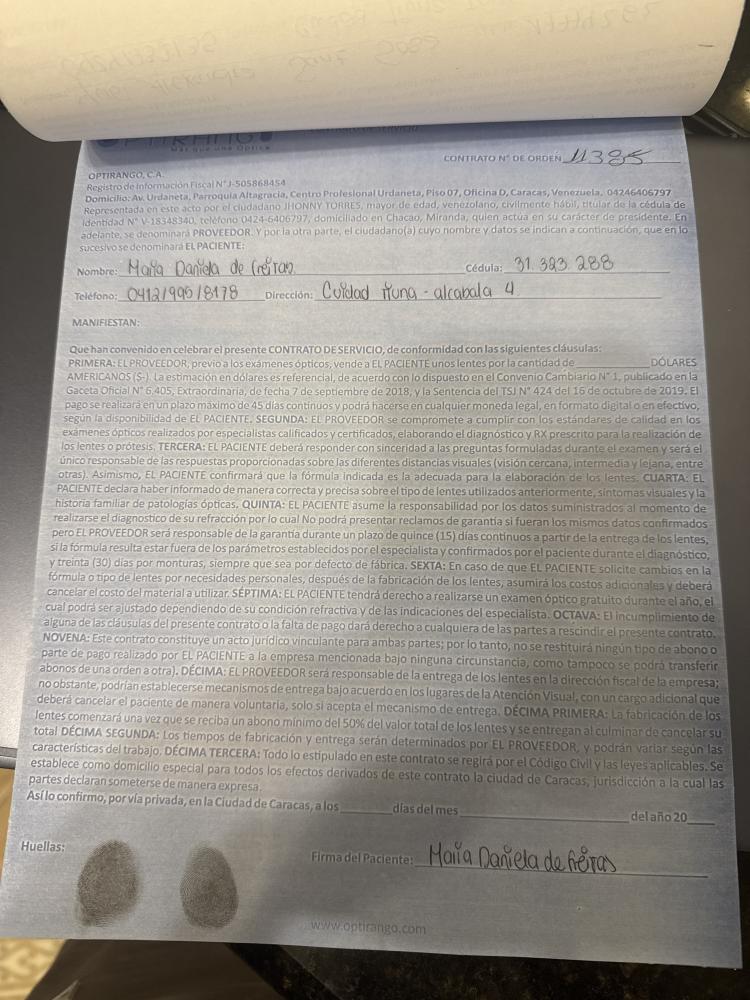 OPTIRANGO
Más que una Óptica
CONTRATO N° DE ORDEN 11385
OPTIRANGO, C.A.
Registro de Información Fiscal N° J-505868454
Domicilio: Av. Urdaneta, Parroquia Altagracia, Centro Profesional Urdaneta, Piso 07, Oficina D, Caracas, Venezuela. 04246406797
Representada en este acto por el ciudadano JHONNY TORRES, mayor de edad, venezolano, civilmente hábil, titular de la cédula de
identidad N° V-18348340, teléfono 0424-6406797, domiciliado en Chacao, Miranda, quien actúa en su carácter de presidente. En
adelante, se denominará PROVEEDOR. Y por la otra parte, el ciudadano(a) cuyo nombre y datos se indican a continuación, que en lo
sucesivo se denominará EL PACIENTE:
Nombre: Maria Daniela de freitas Cédula: 31.323.288
Teléfono: 0412/995/8178 Dirección: Cuidad tiuna - alcabala 4
MANIFIESTAN:
Que han convenido en celebrar el presente CONTRATO DE SERVICIO, de conformidad con las siguientes cláusulas:
PRIMERA: EL PROVEEDOR, previo a los exámenes ópticos, vende a EL PACIENTE unos lentes por la cantidad de DÓLARES
AMERICANOS ($-). La estimación en dólares es referencial, de acuerdo con lo dispuesto en el Convenio Cambiario N° 1, publicado en la
Gaceta Oficial N° 6.405, Extraordinaria, de fecha 7 de septiembre de 2018, y la Sentencia del TSJ N° 424 del 16 de octubre de 2019. El
pago se realizará en un plazo máximo de 45 días continuos y podrá hacerse en cualquier moneda legal, en formato digital o en efectivo,
según la disponibilidad de EL PACIENTE. SEGUNDA: EL PROVEEDOR se compromete a cumplir con los estándares de calidad en los
exámenes ópticos realizados por especialistas calificados y certificados, elaborando el diagnóstico y RX prescrito para la realización de
los lentes o prótesis. TERCERA: EL PACIENTE deberá responder con sinceridad a las preguntas formuladas durante el examen y será el
único responsable de las respuestas proporcionadas sobre las diferentes distancias visuales (visión cercana, intermedia y lejana, entre
otras). Asimismo, EL PACIENTE confirmará que la fórmula indicada es la adecuada para la elaboración de los lentes. CUARTA: EL
PACIENTE declara haber informado de manera correcta y precisa sobre el tipo de lentes utilizados anteriormente, síntomas visuales y la
historia familiar de patologías ópticas. QUINTA: EL PACIENTE asume la responsabilidad por los datos suministrados al momento de
realizarse el diagnostico de su refracción por lo cual No podrá presentar reclamos de garantía si fueran los mismos datos confirmados
pero EL PROVEEDOR será responsable de la garantía durante un plazo de quince (15) días continuos a partir de la entrega de los lentes,
si la fórmula resulta estar fuera de los parámetros establecidos por el especialista y confirmados por el paciente durante el diagnóstico,
y treinta (30) días por monturas, siempre que sea por defecto de fábrica. SEXTA: En caso de que EL PACIENTE solicite cambios en la
fórmula o tipo de lentes por necesidades personales, después de la fabricación de los lentes, asumirá los costos adicionales y deberá
cancelar el costo del material a utilizar. SÉPTIMA: EL PACIENTE tendrá derecho a realizarse un examen óptico gratuito durante el año, el
cual podrá ser ajustado dependiendo de su condición refractiva y de las indicaciones del especialista. OCTAVA: El incumplimiento de
alguna de las cláusulas del presente contrato o la falta de pago dará derecho a cualquiera de las partes a rescindir el presente contrato.
NOVENA: Este contrato constituye un acto jurídico vinculante para ambas partes; por lo tanto, no se restituirá ningún tipo de abono o
parte de pago realizado por EL PACIENTE a la empresa mencionada bajo ninguna circunstancia, como tampoco se podrá transferir
abonos de una orden a otra). DÉCIMA: EL PROVEEDOR será responsable de la entrega de los lentes en la dirección fiscal de la empresa;
no obstante, podrían establecerse mecanismos de entrega bajo acuerdo en los lugares de la Atención Visual, con un cargo adicional que
deberá cancelar el paciente de manera voluntaria, solo si acepta el mecanismo de entrega. DÉCIMA PRIMERA: La fabricación de los
lentes comenzará una vez que se reciba un abono mínimo del 50% del valor total de los lentes y se entregan al culminar de cancelar su
total DÉCIMA SEGUNDA: Los tiempos de fabricación y entrega serán determinados por EL PROVEEDOR, y podrán variar según las
características del trabajo. DÉCIMA TERCERA: Todo lo estipulado en este contrato se regirá por el Código Civil y las leyes aplicables. Se
establece como domicilio especial para todos los efectos derivados de este contrato la ciudad de Caracas, jurisdicción a la cual las
partes declaran someterse de manera expresa.
Así lo confirmo, por vía privada, en la Ciudad de Caracas, a los días del mes del año 20
Huellas:
Firma del Paciente: Maria Daniela de freitas
www.optirango.com